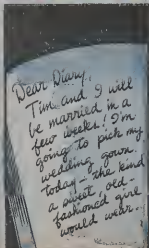 Dear Diary,
Tim and I will
be married in a
few weeks! I'm
going to pick my
wedding gown
today - the kind
a sweet old-
fashioned girl
would wear.